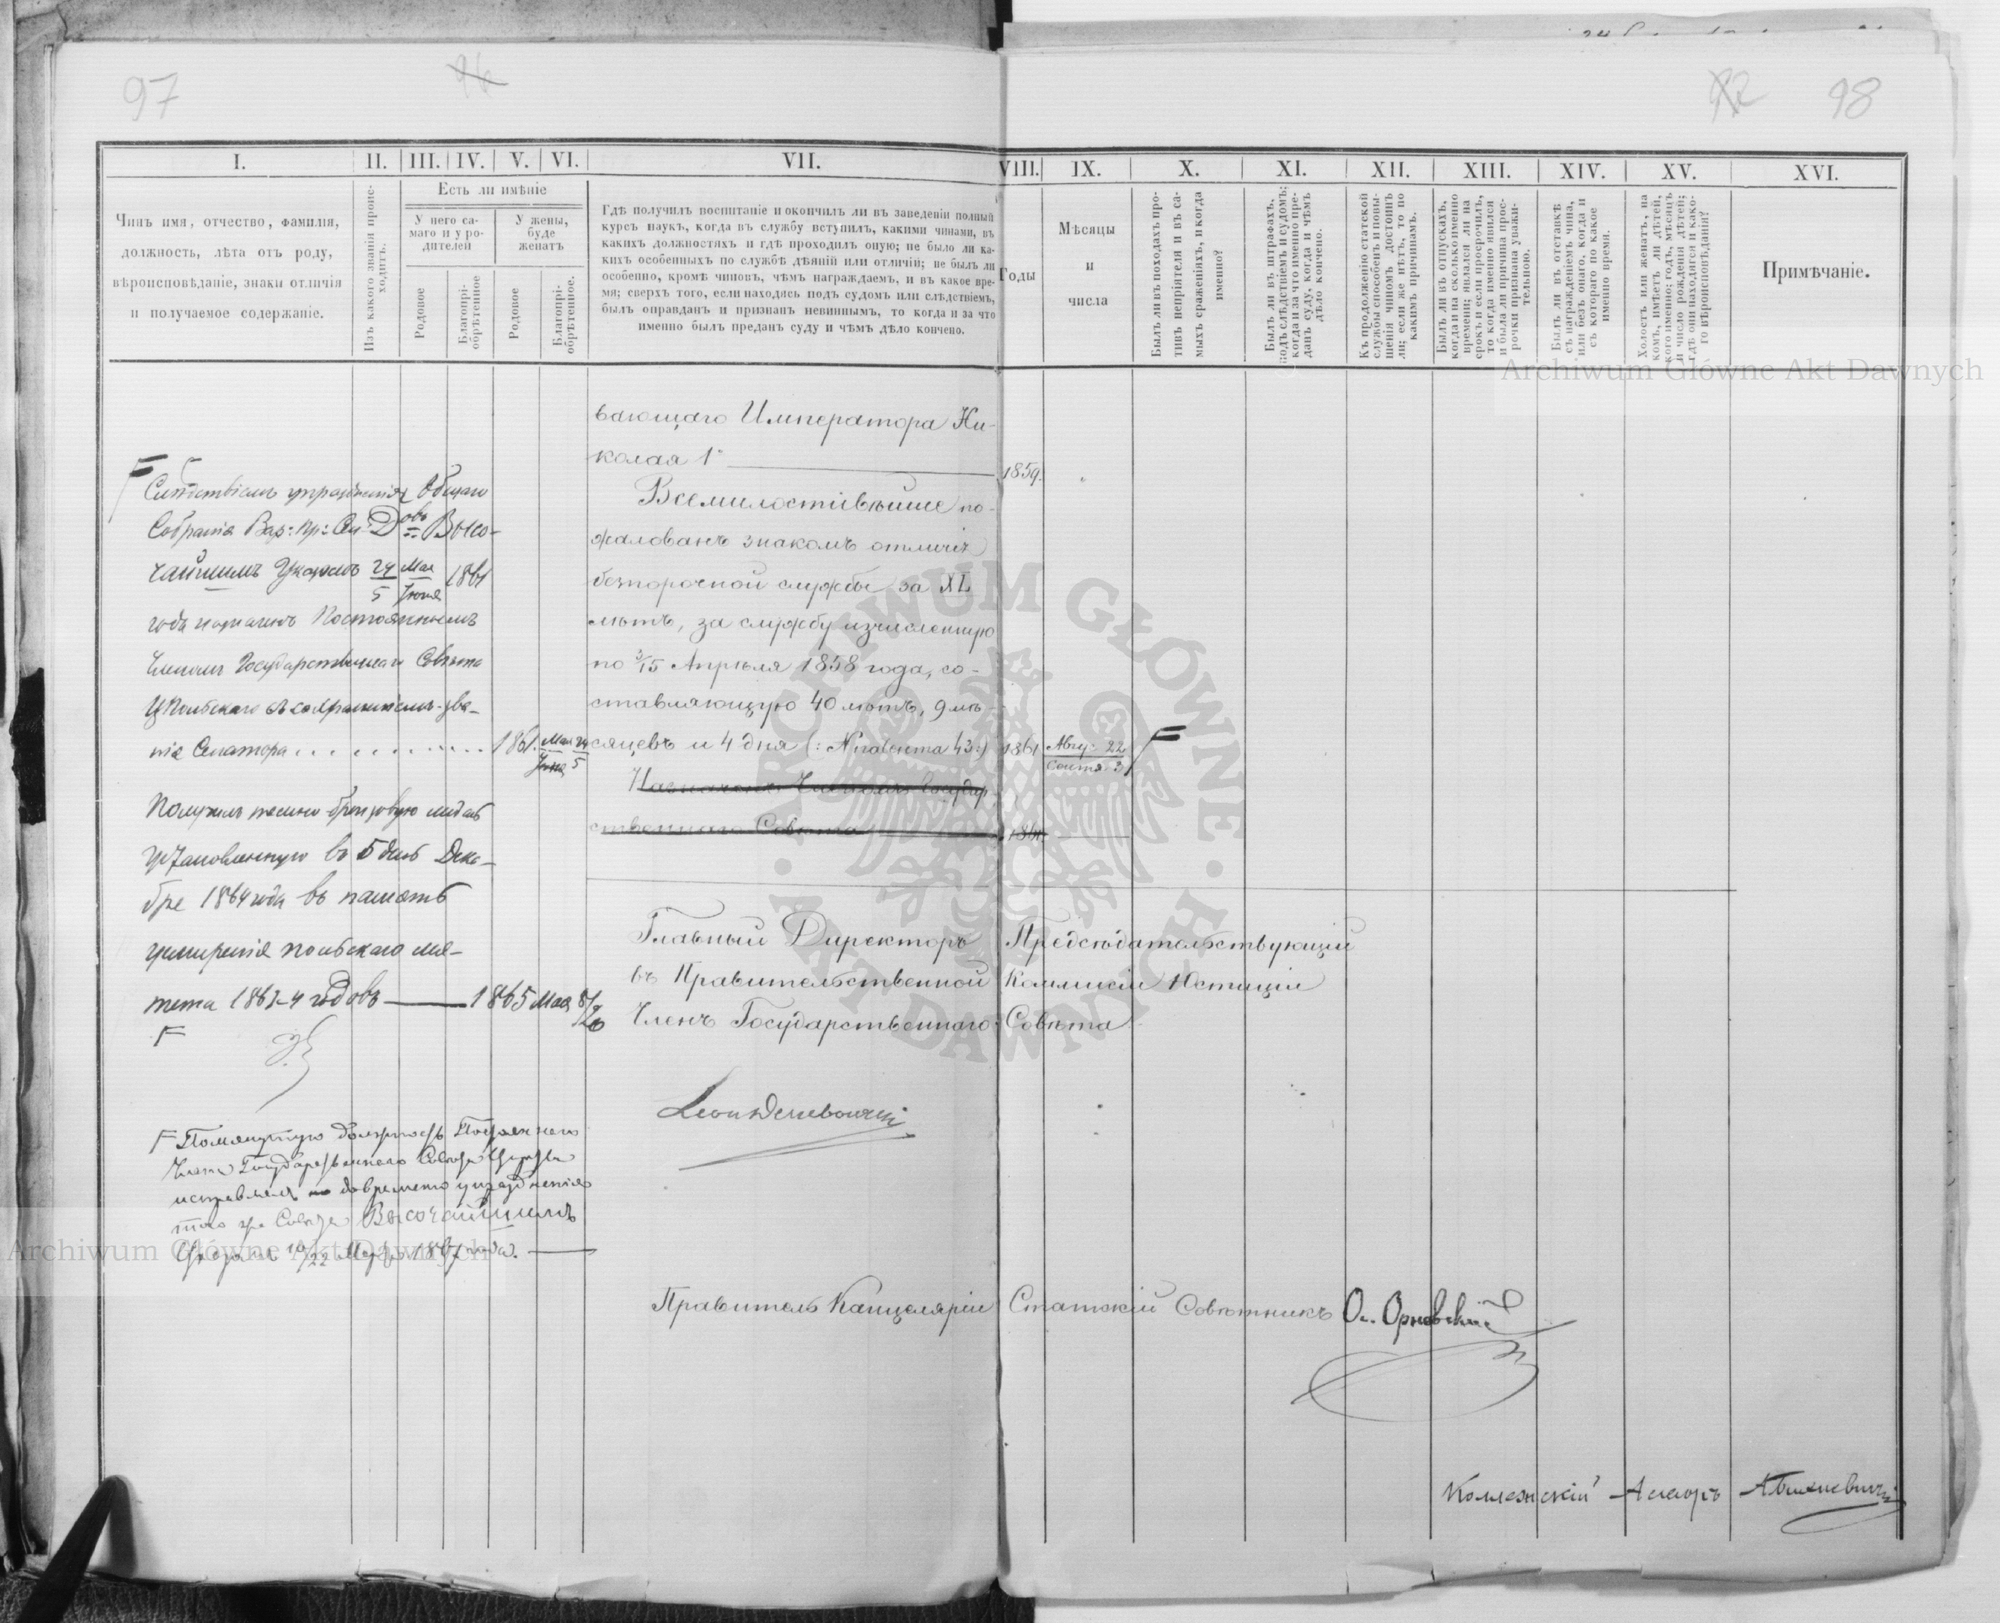 97
96
92
98
I.
II.
III.
IV.
V.
VI.
VII.
VIII.
IX.
X.
XI.
XII.
XIII.
XIV.
XV.
XVI.
Чинъ имя, отчество, фамилія,
должность, лѣта отъ роду,
вѣроисповѣданіе, знаки отличія
и получаемое содержаніе.
Изъ какого званія проис-
ходитъ.
Есть ли имѣніе
У него са-
маго и у ро-
дителей
У жены,
буде
женатъ
Родовое
Благопрі-
обрѣтенное
Родовое
Благопрі-
обрѣтенное.
Гдѣ получилъ воспитаніе и окончилъ ли въ заведеніи полный
курсъ наукъ, когда въ службу вступилъ, какими чинами, въ
какихъ должностяхъ и гдѣ проходилъ оную; не было ли ка-
кихъ особенныхъ по службѣ дѣяній или отличій; не былъ ли
особенно, кромѣ чиновъ, чѣмъ награждаемъ, и въ какое вре-
мя; сверхъ того, если находясь подъ судомъ или слѣдствіемъ,
былъ оправданъ и признанъ невиннымъ, то когда и за что
именно былъ преданъ суду и чѣмъ дѣло кончено.
Годы
Мѣсяцы
и
числа
Былъ ли въ походахъ про-
тивъ непріятеля и въ са-
мыхъ сраженіяхъ, и когда
именно?
Былъ ли въ штрафахъ,
подъ слѣдствіемъ и судомъ;
когда и за что именно пре-
данъ суду, когда и чѣмъ
дѣло кончено.
Къ продолженію статской
службы способенъ и повы-
шенія чиномъ достоинъ
ли; если же нѣтъ, то по
какимъ причинамъ.
Былъ ли въ отпускахъ,
когда и на сколько именно
времени; являлся ли на
срокъ и если просрочилъ,
то когда именно явился
и была ли причина прос-
рочки признана уважи-
тельною.
Былъ ли въ отставкѣ
съ награжденіемъ чина,
или безъ онаго, когда и
съ котораго по какое
именно время.
Холостъ или женатъ, на
комъ, имѣетъ ли дѣтей,
кого именно; годъ, мѣсяцъ
и число рожденія дѣтей;
гдѣ они находятся и како-
го вѣроисповѣданія?
Примѣчаніе.
Archiwum Główne Akt Dawnych
вающаго Императора Ни-
колая 1º 1859.
Всемилостивѣйше по-
жалованъ знакомъ отличія
безпорочной службы за XL
лѣтъ, за службу изчисленную
по 3/15 Апрѣля 1858 года, со-
ставляющую 40 лѣтъ, 9 мѣ-
сяцевъ и 4 дня 1861 Авгу: 22
Сентя 3
Назначенъ Членомъ Государ-
ственнаго Совѣта 1861
Собранія Вар: Пр: Сен: Довъ Высо-
чайшимъ Указомъ 24 Мая 1861
5 Іюня
года назначенъ Постояннымъ
Членомъ Государственнаго Совѣта
Ц Польскаго съ сохраненіемъ зва-
нія Сенатора 1861 Мая 24
Іюня 5
Получилъ темно-бронзовую медаль
установленную въ 5 день Дека-
бря 1864 года въ память
усмиренія польскаго мя-
тежа 1863-4 годовъ 1865 Мая 8/20
Главный Директоръ Предсѣдательствующій
въ Правительственной Коммисіи Юстиціи
Членъ Государственнаго Совѣта
Помянутую должность
Члена Государственнаго Совѣта Царства
исправлялъ до времени упраздненія
того же Совѣта Высочайшимъ
Указомъ 10/22 Марта 1867 года.
Archiwum Główne Akt Dawnych
Правитель Канцеляріи Статскій Совѣтникъ
Коллежскій Асессоръ
ARCHIWUM GŁÓWNE AKT DAWNYCH